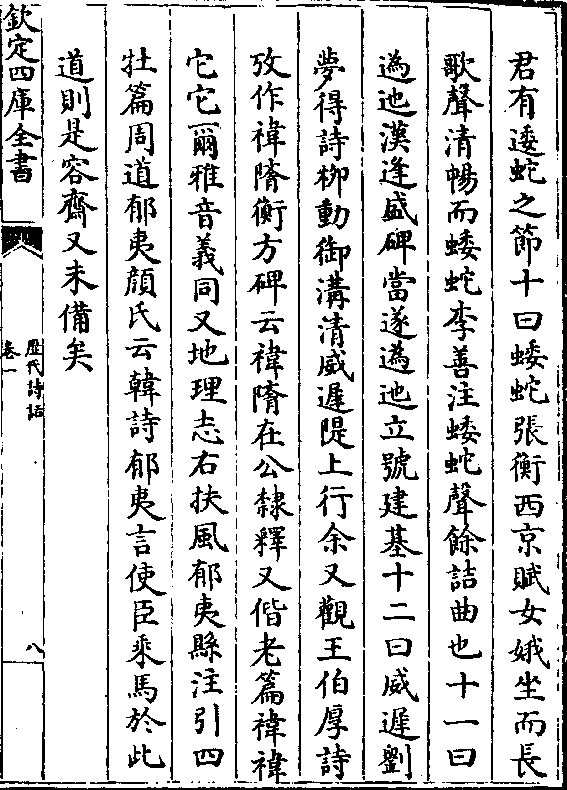 君有逶蛇之節十曰蜲蛇張衡西京賦女娥坐而長
歌聲清暢而蜲蛇李善注蜲蛇聲餘詰曲也十一曰
䢬迆漢逄盛碑當遂䢬迆立號建基十二曰威遲劉
夢得詩栁動御溝清威遲隄上行余又觀王伯厚詩
攷作禕隋衡方碑云禕隋在公隸釋又偕老篇禕禕
它它爾雅音義同又地理志右扶風郁夷縣注引四
牡篇周道郁夷顔氏云韓詩郁夷言使臣乘馬於此
道則是容齋又未備矣
欽定四庫全書
歴代詩話
卷一
八